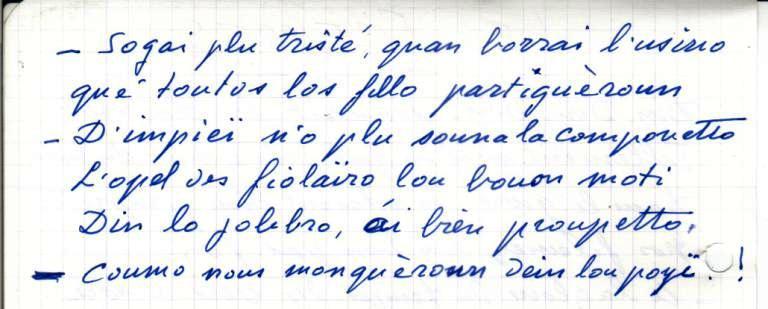 - Sogai plu tristé, quan borrai l'usino
qué toutos los fillo partiguèroun
- D'impieï n'o plu souna la componetto
L'opel des fiolaïro lou bouon moti
Din lo jolebro, èi bièn proupetto,
- Coumo nous monquèroun dein lou poyï. !